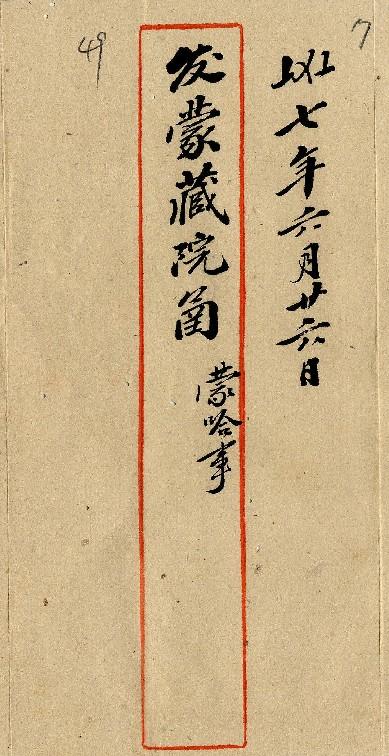 7
七年六月廿六日
发蒙藏院函
蒙哈事
49